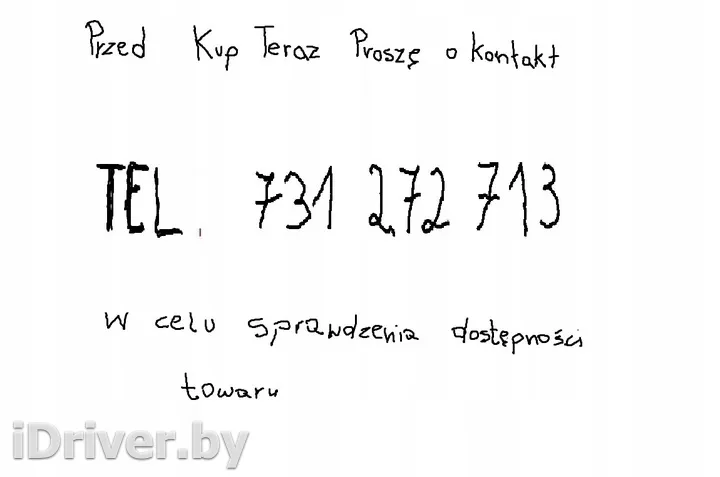 Przed Kup Teraz Proszę o kontakt
TEL. 731 272 713
w celu sprawdzenia dostępności
towaru
iDriver.by